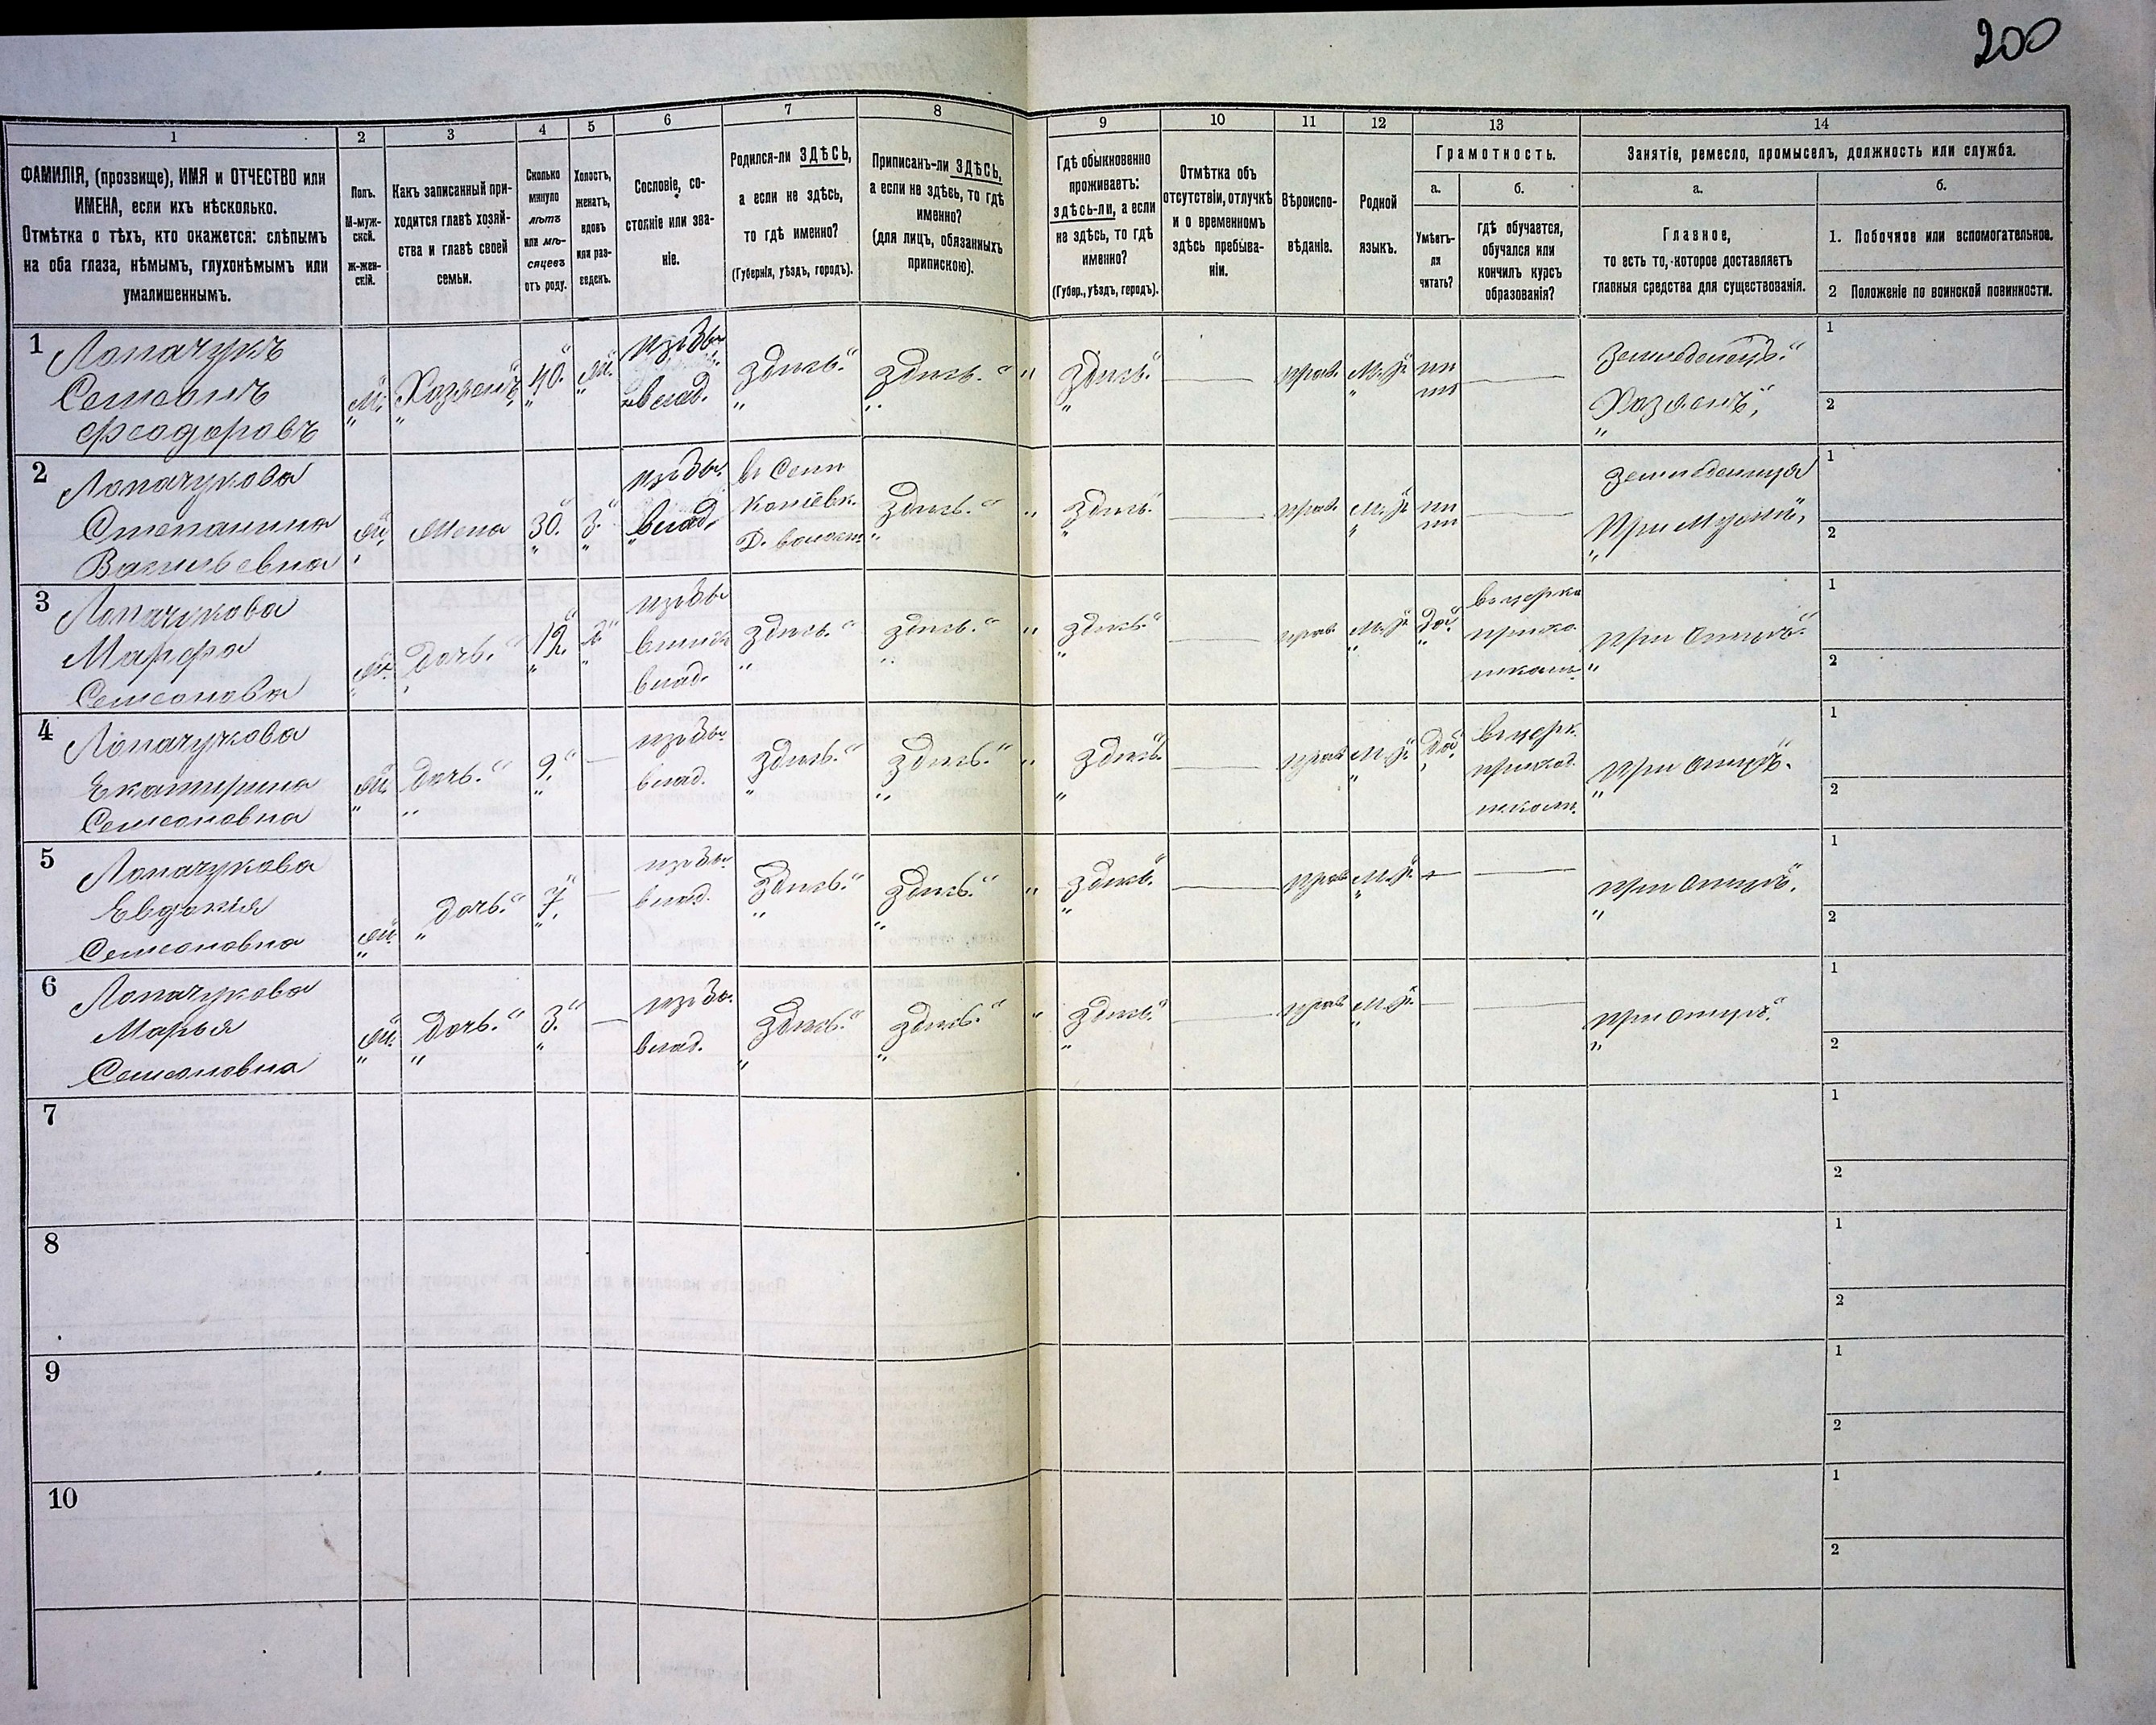 200
1
2
3
4
5
6
7
8
9
10
11
12
13
14
ФАМИЛІЯ, (прозвище), ИМЯ и ОТЧЕСТВО или
ИМЕНА, если ихъ нѣсколько.
Отмѣтка о тѣхъ, кто окажется: слѣпымъ
на оба глаза, нѣмымъ, глухонѣмымъ или
умалишеннымъ.
Полъ.
М-муж-
ской.
Ж-жен-
скій.
Какъ записанный при-
ходится главѣ хозяй-
ства и главѣ своей
семьи.
Сколько
минуло
лѣтъ
или мѣ-
сяцевъ
отъ роду.
Холостъ,
женатъ,
вдовъ
или раз-
веденъ.
Сословіе, со-
стояніе или зва-
ніе.
Родился-ли ЗДѢСЬ,
а если не здѣсь,
то гдѣ именно?
(Губернія, уѣздъ, городъ).
Приписанъ-ли ЗДѢСЬ,
а если не здѣсь, то гдѣ
именно?
(для лицъ, обязанныхъ
припискою).
Гдѣ обыкновенно
проживаетъ:
здѣсь-ли, а если
не здѣсь, то гдѣ
именно?
(Губер., уѣздъ, городъ).
Отмѣтка объ
отсутствіи, отлучкѣ
и о временномъ
здѣсь пребыва-
ніи.
Вѣроиспо-
вѣданіе.
Родной
языкъ.
Грамотность.
а.
б.
Умѣетъ-
ли
читать?
гдѣ обучается,
обучался или
кончилъ курсъ
образованія?
Занятіе, ремесло, промыселъ, должность или служба.
а.
б.
Главное,
то есть то, которое доставляетъ
главныя средства для существованія.
1. Побочное или вспомогательное.
2 Положеніе по воинской повинности.
1
Лопачукъ
Семеонъ
Феодоровъ
М.
Хозяинъ
40.
Ж.
влад.
здѣсь.
здѣсь.
здѣсь.
прав.
М. Р.
нѣ
тъ
Земледѣлецъ.
Хозяинъ,
1
2
2
Лопачукова
Степанида
Васильевна
Ж.
Жена
30.
З.
влад.
здѣсь.
здѣсь.
прав.
М. Р.
нѣ
тъ
При Мужѣ,
1
2
3
Лопачукова
Марфа
Семеоновна
Ж.
Дочь.
12.
Д
влад.
здѣсь.
здѣсь.
здѣсь.
прав.
М. Р.
Да.
въ церко
прихо.
школѣ
при отцѣ.
1
2
4
Лопачукова
Екатерина
Семеоновна
Ж.
Дочь.
9.
влад.
здѣсь.
здѣсь.
здѣсь.
прав
М. Р.
Да.
въ церк.
приход.
школѣ.
при отцѣ.
1
2
5
Лопачукова
Евдокія
Семеоновна
Ж.
Дочь.
7.
влад.
здѣсь.
здѣсь.
здѣсь.
прав
М. Р.
при отцѣ.
1
2
6
Лопачукова
Марья
Семеоновна
Ж.
Дочь.
3.
влад.
здѣсь.
здѣсь.
здѣсь.
прав
М. Р.
при отцѣ.
1
2
7
1
2
8
1
2
9
1
2
10
1
2